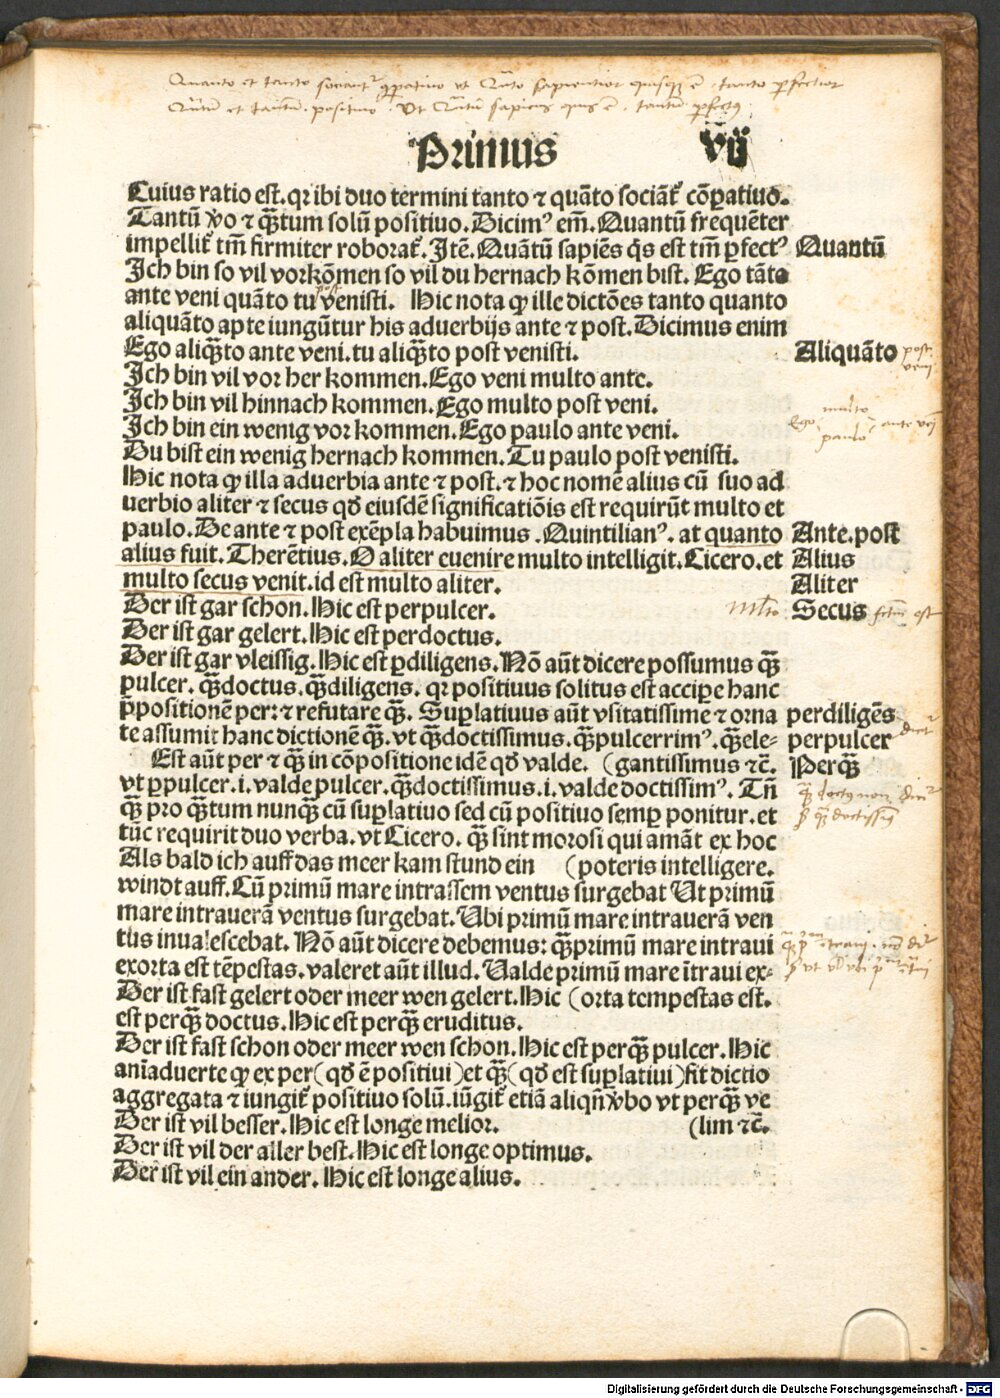 Quanto et tanto sociant᷑ ꝯparatiuo ut Quāto sapientior quisqꝫ ē tanto ꝑfectior
Quātū et tantū positiuo. Ut Quātū sapiens quis ē, tantū ꝑfectꝰ
Primus vij
Cuius ratio est. qꝛ ibi duo termini tanto ⁊ quāto sociāt᷑ cōꝑatiuo.
Tantū ꝟo ⁊ qͣꝫtum solū positiuo. Dicimꝰ em̄. Quantū frequēter
impellit᷑ tm̄ firmiter roborat᷑. Itē. Quātū sapiēs qͥs est tm̄ ꝑfectꝰ
Quantū
Ich bin so vil vorkōmen so vil du hernach kōmen bist. Ego tāto
ante veni quāto tu venisti. Hic nota ꝙ ille dictōes tanto quanto
post
aliquāto apte iungūtur his aduerbijs ante ⁊ post. Dicimus enim
Ego aliqͣꝫto ante veni. tu aliqͣꝫto post venisti.
Aliquāto
post
veni
Ich bin vil vor her kommen. Ego veni multo ante.
Ich bin vil hinnach kommen. Ego multo post veni.
Ich bin ein wenig vor kommen. Ego paulo ante veni.
Ego multo paulo ante veni
Du bist ein wenig hernach kommen. Tu paulo post venisti.
Hic nota ꝙ illa aduerbia ante ⁊ post. ⁊ hoc nomē alius cū suo ad
uerbio aliter ⁊ secus qd̄ eiusdē significatiōis est requirūt multo et
paulo. De ante ⁊ post exēpla habuimus. Quintilianꝰ. at quanto
Ante. post
alius fuit. Therētius. O aliter euenire multo intelligit. Cicero. et
Alius
multo secus venit. id est multo aliter.
Aliter
Der ist gar schon. Hic est perpulcer.
Secus
Der ist gar gelert. Hic est perdoctus.
Der ist gar vleissig. Hic est ꝑdiligens. Nō aūt dicere possumus qͣꝫ
pulcer. qͣꝫdoctus. qͣꝫdiligens. qꝛ positiuus solitus est accipe hanc
p̄positionē per: ⁊ refutare qͣꝫ. Suꝑlatiuus aūt vsitatissime ⁊ orna
perdiligēs
te assumit hanc dictionē qͣꝫ. vt qͣꝫdoctissimus. qͣꝫpulcerrimꝰ. qͣꝫele-
perpulcer
Est aūt per ⁊ qͣꝫ in cōpositione idē qd̄ valde. (gantissimus ⁊c̄.
Perqͣꝫ
vt ꝑpulcer. i. valde pulcer. qͣꝫdoctissimus. i. valde doctissimꝰ. Tn̄
qͣꝫ pro qͣꝫtum nunqͣꝫ cū suꝑlatiuo sed cū positiuo semꝑ ponitur. et
tūc requirit duo verba. vt Cicero. qͣꝫ sint morosi qui amāt ex hoc
Als bald ich auff das meer kam stund ein (poteris intelligere.
windt auff. Cū primū mare intrassem ventus surgebat Ut primū
mare intrauerā ventus surgebat. Ubi primū mare intrauerā ven
tus inualescebat. Nō aūt dicere debemus: qͣꝫprimū mare intraui
exorta est tēpestas. valeret aūt illud. Ualde primū mare ītraui ex-
Der ist fast gelert oder meer wen gelert. Hic (orta tempestas est.
est perqͣꝫ doctus. Hic est perqͣꝫ eruditus.
Der ist fast schon oder meer wen schon. Hic est perqͣꝫ pulcer. Hic
anīaduerte ꝙ ex per (qd̄ ē positiui) et qͣꝫ (qd̄ est suꝑlatiui) fit dictio
aggregata ⁊ iungit᷑ positiuo solū. iūgit᷑ etiā aliqn̄ ꝟbo vt perqͣꝫ ve
Der ist vil besser. Hic est longe melior. (lim ⁊c̄.
Der ist vil der aller best. Hic est longe optimus.
Der ist vil ein ander. Hic est longe alius.
Digitalisierung gefördert durch die Deutsche Forschungsgemeinschaft - DFG